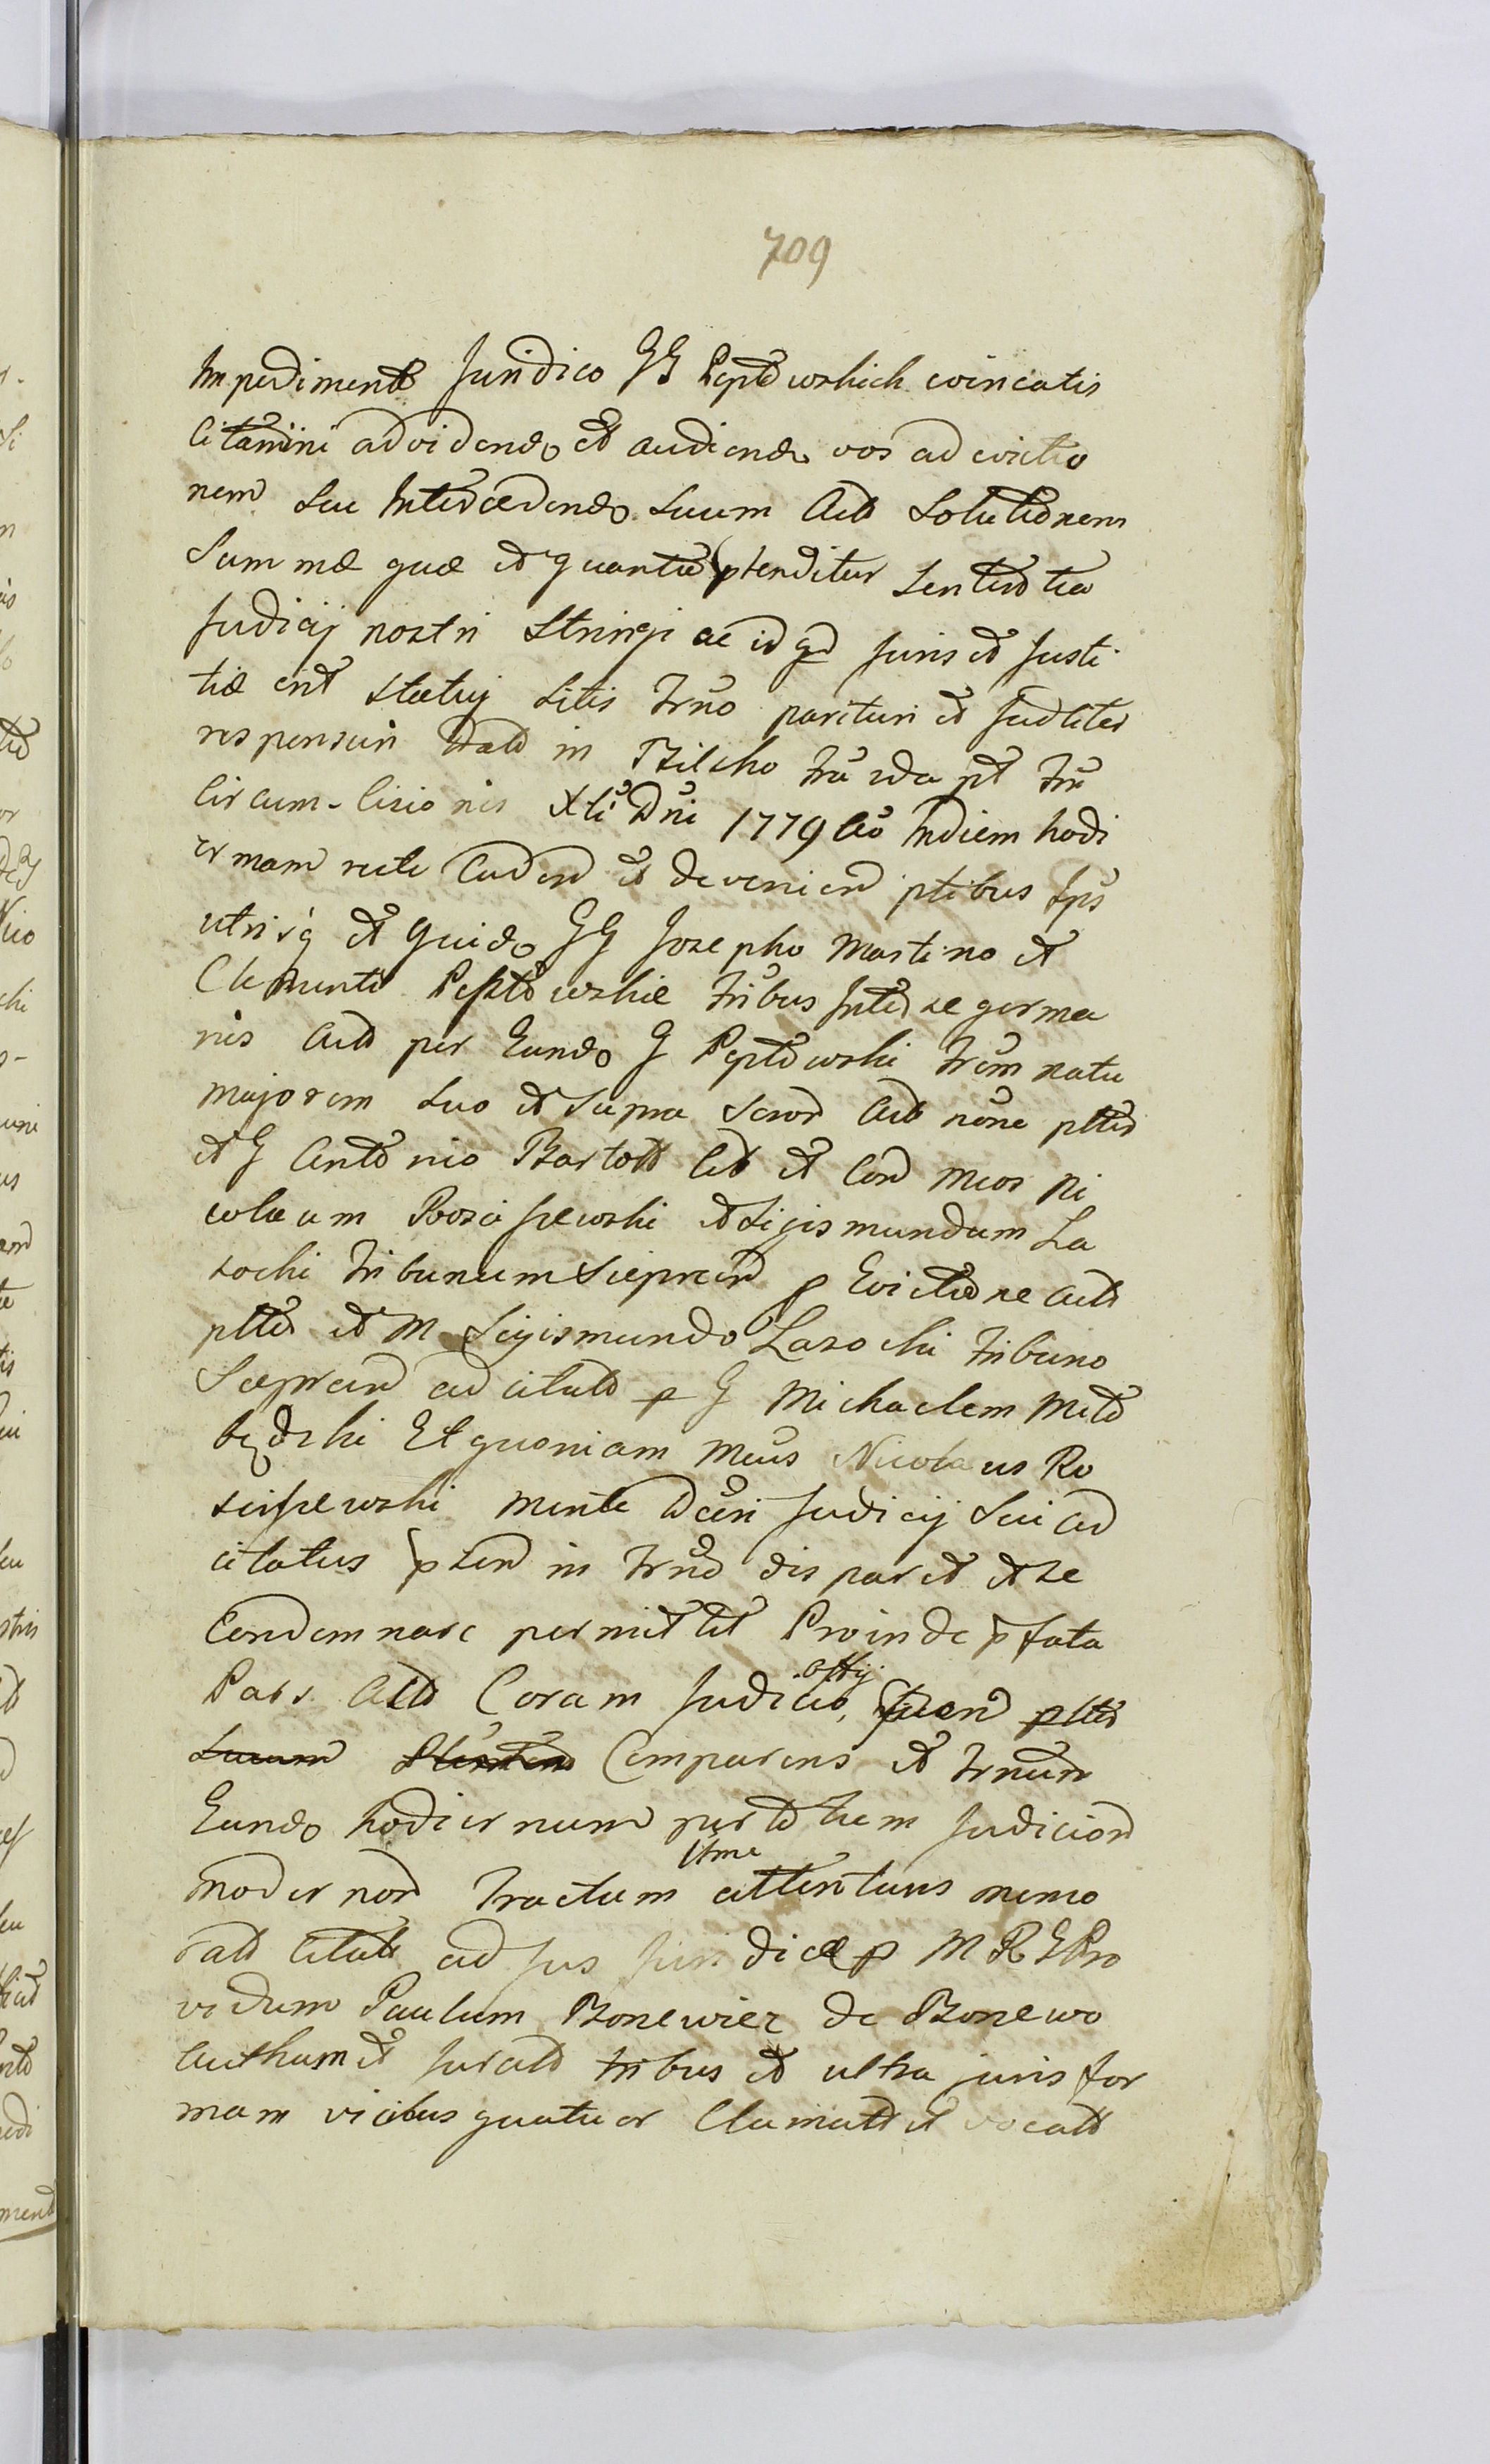 709
Impedimento Juridico GG Peptowskich evincatis
Citamini ad videndo et audiendo vos ad evictio
nem seu Intercedendo suum Act Solutionem
Summæ quæ et quantæ ptenditur Sententia
Judicij nostri Stringi ac id qd Juris et Justi
tiæ erit statuj Sitis Trno parituri et Judliter
responsuri Dat in Bilsko fra 2da pt frm
Circum-Cisionis Xti Dni 1779 Ao Indiem hodi
ernam recte Caden et devenien ptibus Ipis
utrisq et quido GG Josepho Martino et
Clementi Peptowskie fribus Inter se germa
nis Act per Eundo G Peptowski frem natu
majorem suo et supra Scror Act nõne pltes
et G Antonio Bartold Cit et Con Mcos Ni
colaum Rosciszewski et Sigismundum La
socki Tribunum Sieprcen p Evictione Act
pltes et M Sigismundo Lasocki Tribuno
Sieprcen ad citato p G Michaelem Meto
będzki Et quoniam Mcus Nicolaus Ro
sciszewski Mente Dcėri Judicij Sui ad
citatus pten in Trno disparet et se
Condemnare permittit Proinde pfata
Pars Act Coram Judicio, offij. pltes
Comparens et Trnum
Eundo hodiernum per totum Judicior
modernor Tractum ittme attentans memo
rat Citat ad Jus Juridice p M R G Pro
vidum Paulum Bonewicz de Bonewo
Authum et Jurat tribus et ultra juris for
mam vicibus quatuor Clamatt et vocatt